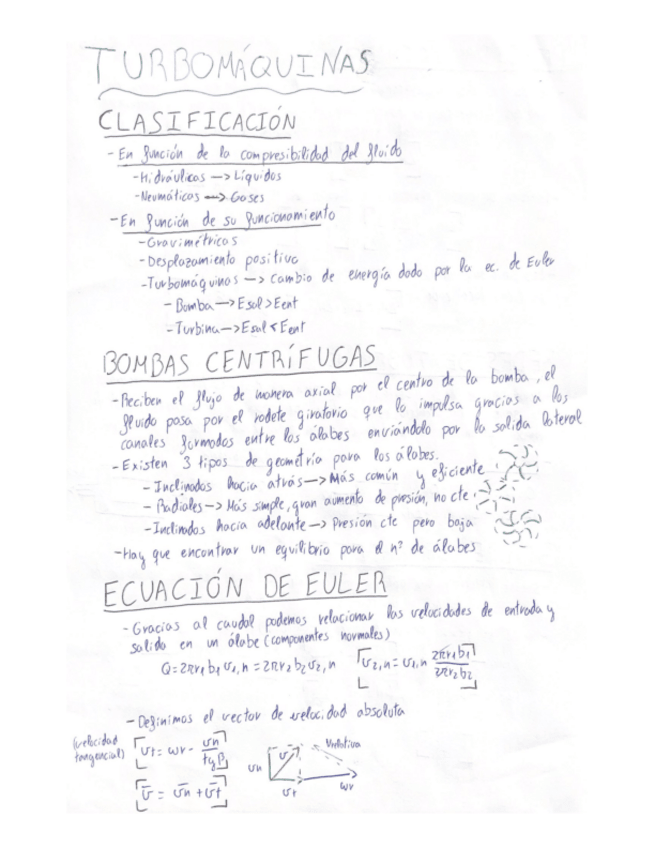 TURBOMÁQUINAS
CLASIFICACIÓN
- En función de la compresibilidad del fluido
- Hidráulicas -> Líquidos
- Neumáticas -> Gases
- En función de su funcionamiento
- Gravimétricas
- Desplazamiento positivo
- Turbomáquinas -> Cambio de energía dado por la ec. de Euler
- Bomba -> Esal > Eent
- Turbina -> Esal < Eent
BOMBAS CENTRÍFUGAS
- Reciben el flujo de manera axial por el centro de la bomba, el
fluido pasa por el rodete giratorio que lo impulsa gracias a los
canales formados entre los álabes enviándolo por la salida lateral
- Existen 3 tipos de geometría para los álabes.
- Inclinados hacia atrás -> Más común y eficiente
- Radiales -> Más simple, gran aumento de presión, no cte
- Inclinados hacia adelante -> Presión cte pero baja
- Hay que encontrar un equilibrio para el nº de álabes
ECUACIÓN DE EULER
- Gracias al caudal podemos relacionar las velocidades de entrada y
salida en un álabe (componentes normales)
Q = 2πr1 b1 v1,n = 2πr2 b2 v2,n [v2,n = v1,n 2πr1b1 / 2πr2b2]
- Definimos el vector de velocidad absoluta
(velocidad tangencial) [vt = wr - vn / tg β]
vn v vt Vrelativa wr
[v̄ = v̄n + v̄t]